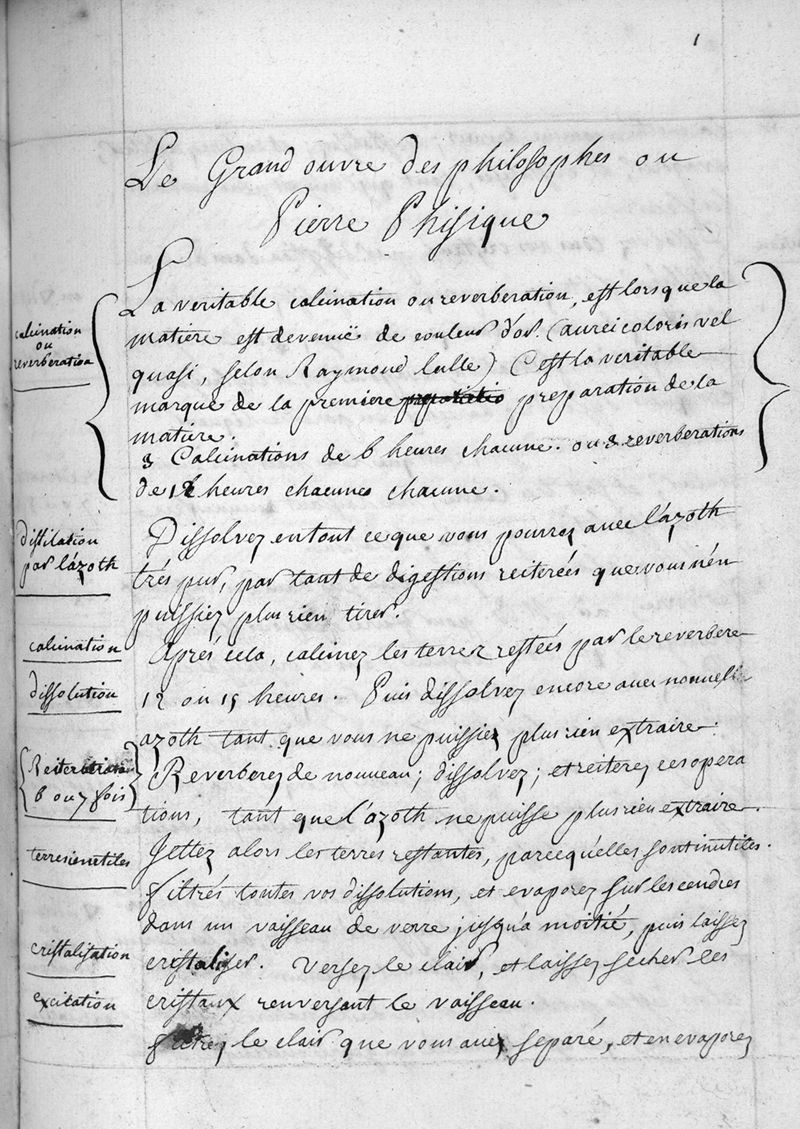 1
Le Grand ouvre des philosophes ou
Pierre Phisique
calcination
ou
reverberation
La veritable calcination ou reverberation, est lorsque la
matiere est devenuë de couleur d'or. (aurei coloris vel
quasi, selon Raymond lulle) C'est la veritable
marque de la premiere preparation de la
matiere.
3 Calcinations de 6 heures chacune. ou 3 reverberations
de 12 heures chacunes chacune.
distilation
par l'azoth
Dissolvez en tout ce que vous pourrez avec l'azoth
trés pur, par tant de digestions reiterées que vous n'en
puissiez plus rien tirer.
calcination
Aprés cela, calcinez les terrez restées par le reverbere
dissolution
12 ou 15 heures. Puis dissolvez encore avec nouvell
azoth tant que vous ne puissiez plus rien extraire.
Reiteration
6 ou 7 fois
Reverberez de nouveau; dissolvez; et reiterez ces opera
tions, tant que l'azoth ne puisse plus rien extraire.
terres inutiles
Jettez alors les terres restantes, parcequ'elles sont inutiles.
Filtrés toutes vos dissolutions, et evaporez sur les cendres
dans un vaisseau de verre jusqu'a moitié, puis laissez
cristalisation
cristaliser. Versez le clair, et laissez secher les
exitation
cristaux renversant le vaisseau.
Filtrez le clair que vous avez separé, et en evaporez